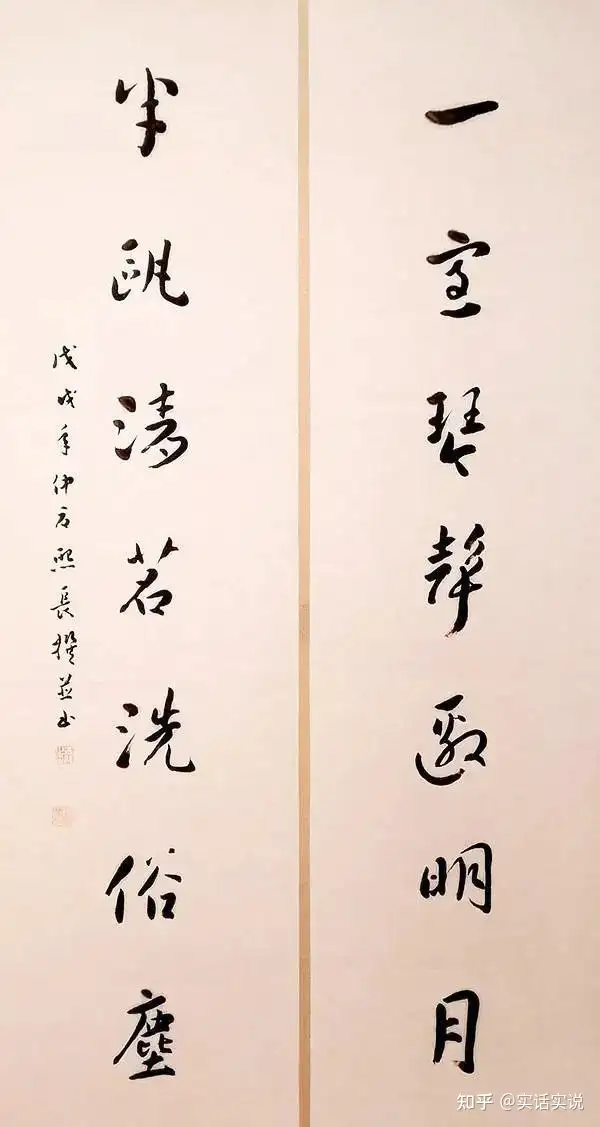 一室琴聲邀明月
半甌清茗洗俗塵
戊戌年仲夏熙長撰並書
知乎 @实话实说